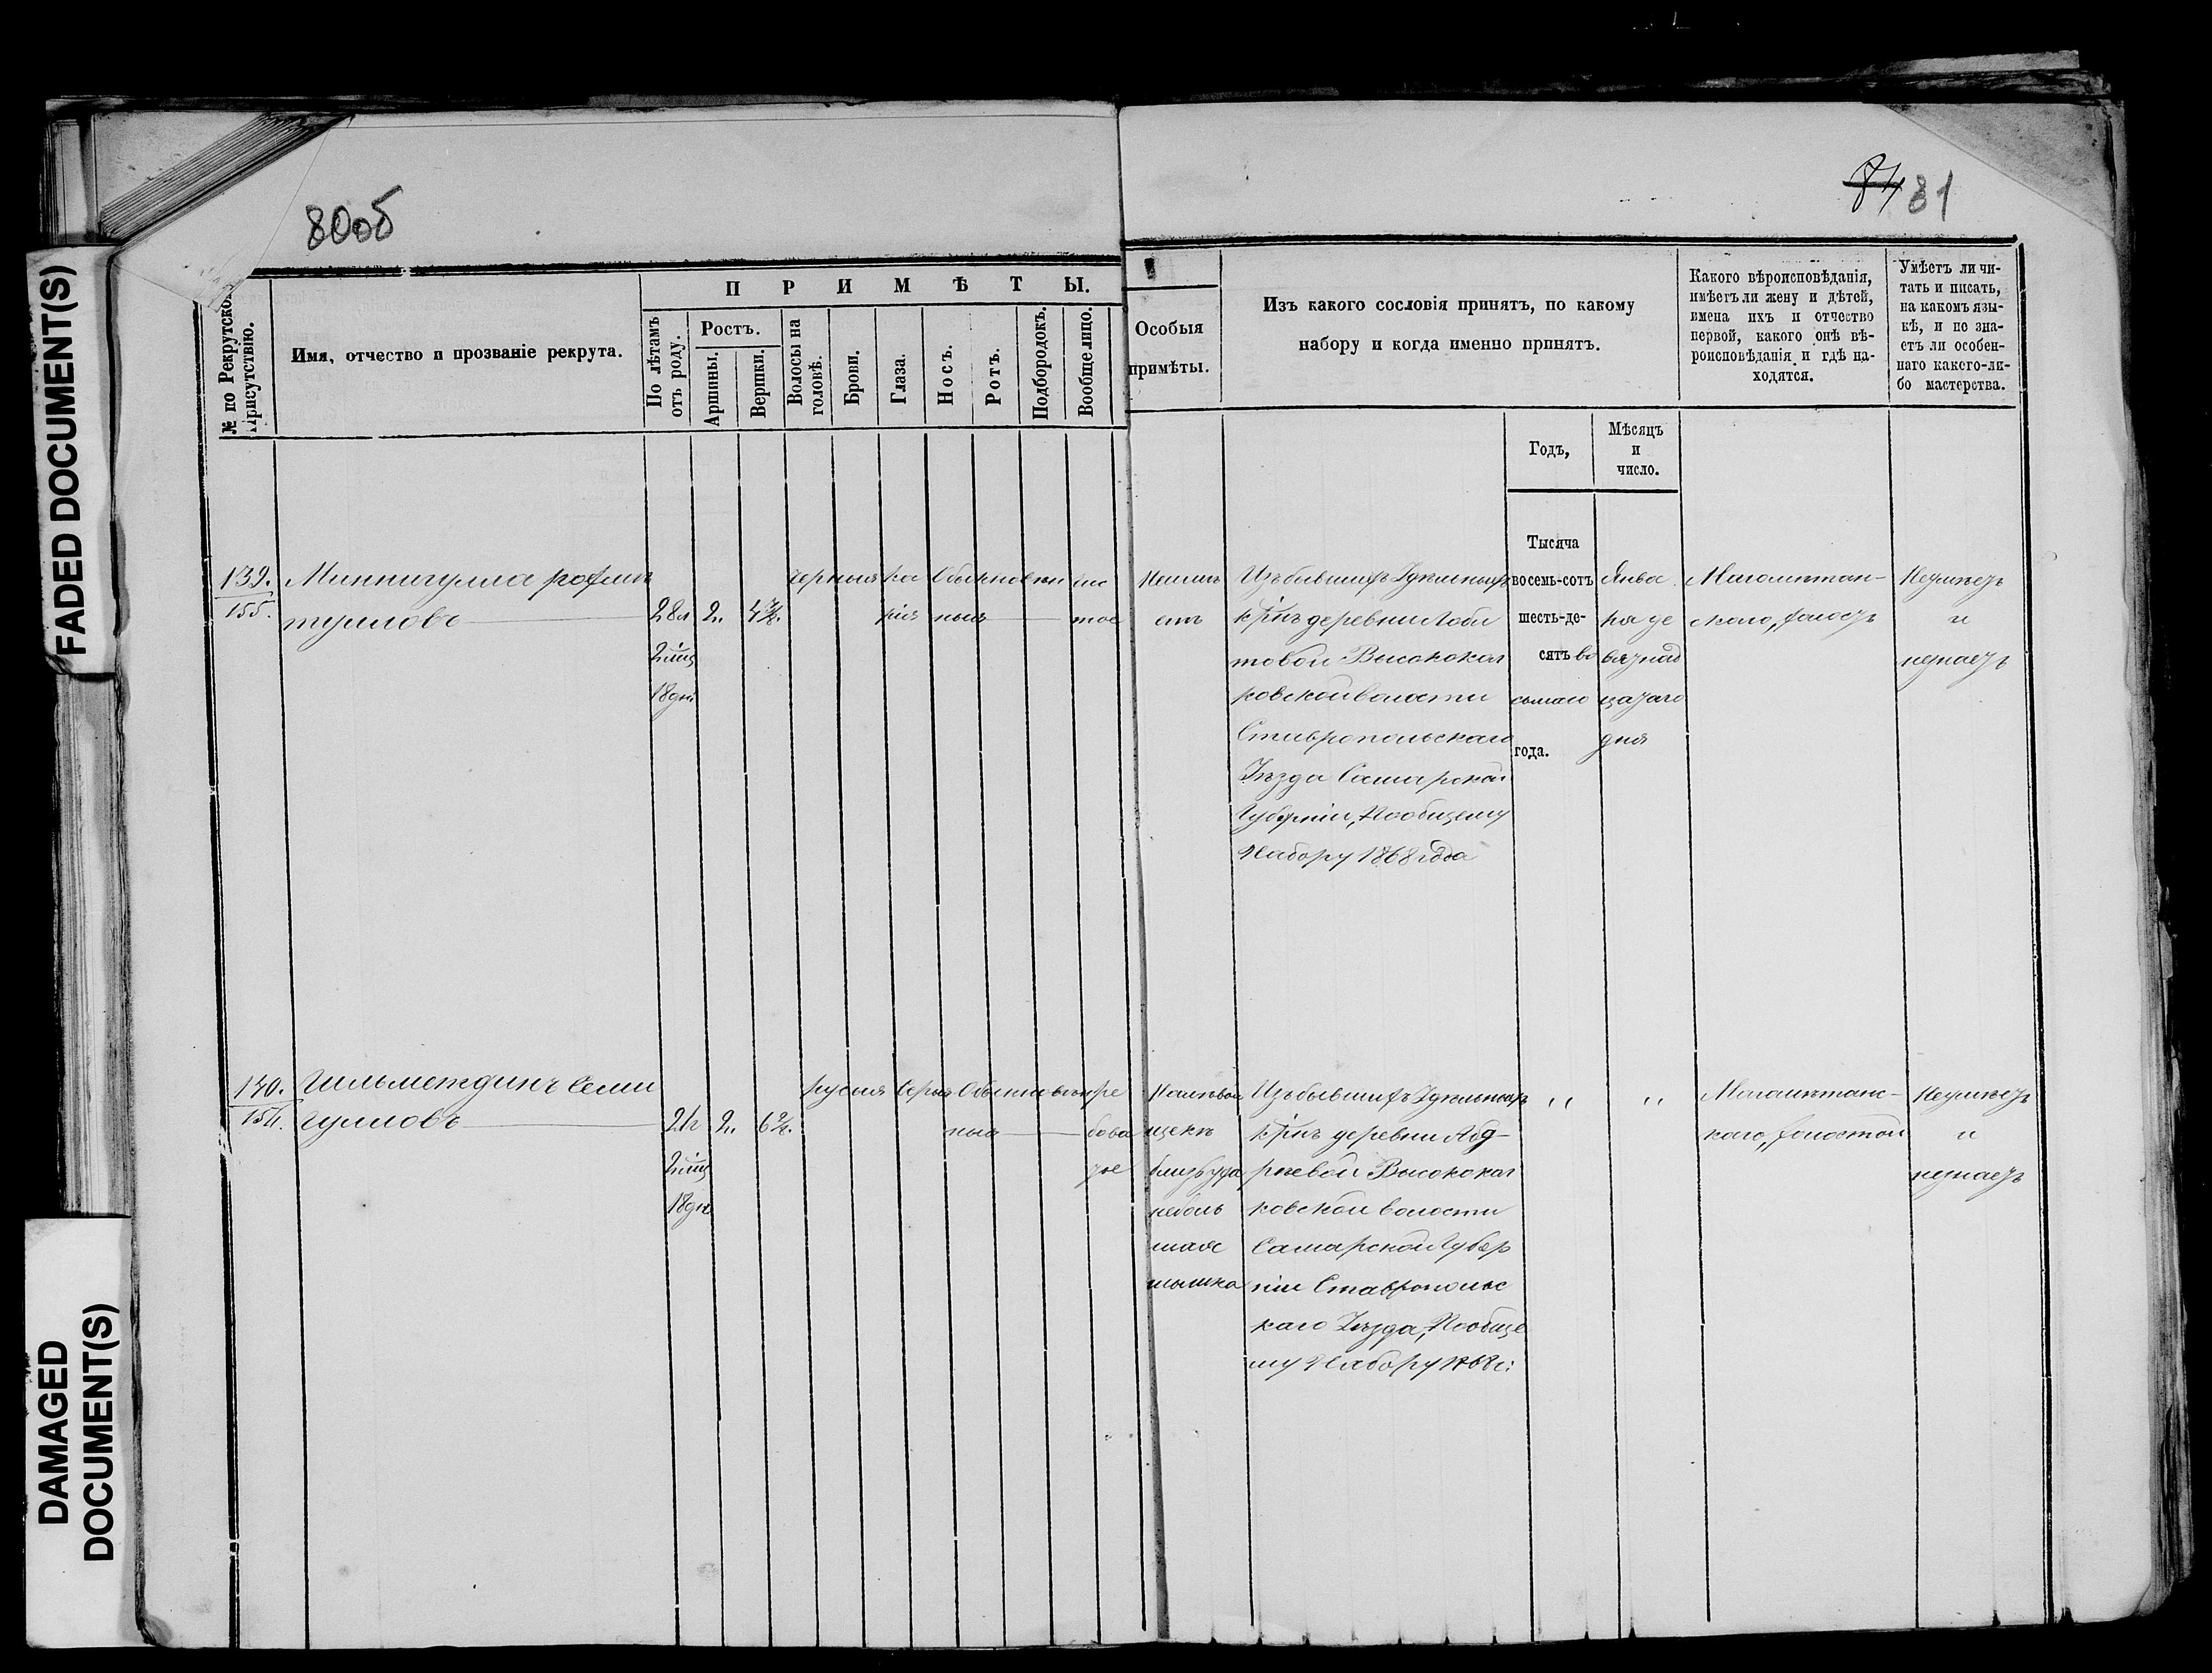 FADED DOCUMENT(S)
DAMAGED
DOCUMENT(S)
80об
84 81
№ по Рекрутско
Присутствію.
Имя, отчество и прозваніе рекрута.
П Р И М Ѣ Т Ы.
По лѣтамъ
отъ роду.
Ростъ.
Аршины.
Вершки.
Волосы на
головѣ.
Брови.
Глаза.
Носъ.
Ротъ.
Подбородокъ.
Вообще лицо.
Особыя
примѣты.
Изъ какого сословія принятъ, по какому
набору и когда именно принятъ.
Годъ,
Мѣсяцъ
и
число.
Какого вѣроисповѣданія,
имѣетъ ли жену и дѣтей,
имена ихъ и отчество
первой, какого онѣ вѣ-
роисповѣданія и гдѣ на-
ходятся.
Умѣетъ ли чи-
тать и писать,
на какомъ язы-
кѣ, и не зна-
етъ ли особен-
наго какого-ли-
бо мастерства.
139.
155.
28л 2.
2 мѣц
18 дн.
черныя ка Обыкновен чис
ріе ныя тое
Неимѣ
етъ
Изъ бывшихъ Удѣльныхъ
деревни
товой Высококол
ковской волости
Ставропольскаго
Уѣзда Самарской
Губерніи, По общему
Набору 1868 года
Тысяча
восемь-сотъ
шесть-де-
сятъ во
сьмаго
года.
Янва
ря де
вятнад
цатаго
дня
Магометан-
скаго, холостъ
Неумѣетъ
и
незнаетъ
140.
154.
гуловъ
21л 2.
2 мѣц
18 дн
русыя Серые Обыкновен ря
ныя бова
тое
На лѣвой
щекѣ
близь уха
неболь
шая
шышка
Изъ бывшихъ Удѣльныхъ
деревни Абд-
рѣевой Высококол
ковской волости
Самарской Губер
ніи Ставропольс
каго Уѣзда, По обще
му Набору 1868 г:
,, ,,
Магометанс-
каго, холостой
Неумѣетъ
и
незнаетъ